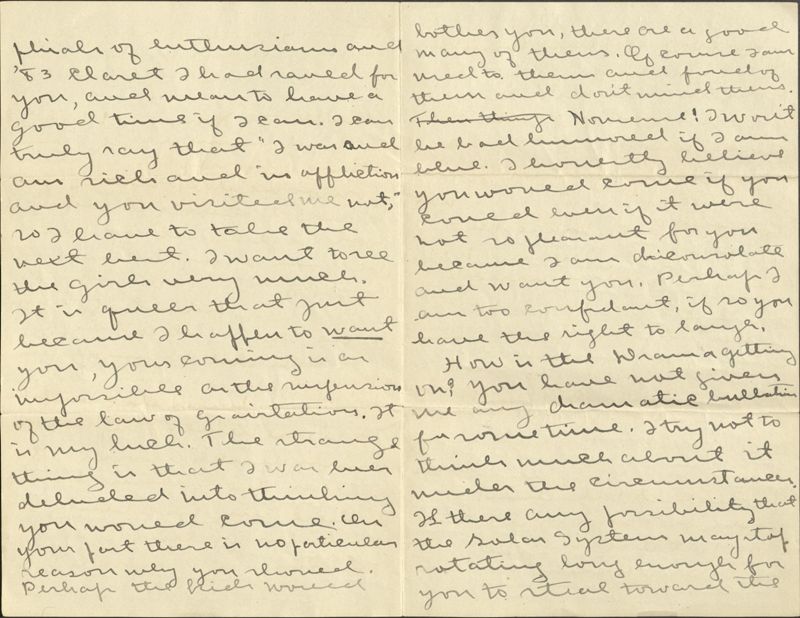 phials of enthusiasm and
'83 Claret I had saved for
you, and mean to have a
good time if I can. I can
truly say that "I was and
am sick and in affliction
and you visited me not,"
so I have to take the
next best. I want to see
the girls very much.
It is queer that just
because I happen to want
you, your coming is as
impossible as the suspension
of the law of gravitation. It
is my luck. The strange
thing is that I was ever
deluded into thinking
you would come. On
your part there is no particular
reason why you should.
Perhaps the kids would
bother you, there are a good
many of them. Of course I am
used to them and fond of
them and don't mind them.
Then things Nonsense! I won't
be bad humored if I am
blue. I honestly believe
you would come if you
could even if it were
not so pleasant for you
because I am disconsolate
and want you. Perhaps I
am too confidant, if so you
have the right to laugh.
How is the Drama getting
on? You have not given
me any dramatic bulletin
for some time. I try not to
think much about it
under the circumstances.
Is there any possibility that
the Solar System may stop
rotating long enough for
you to steal toward the